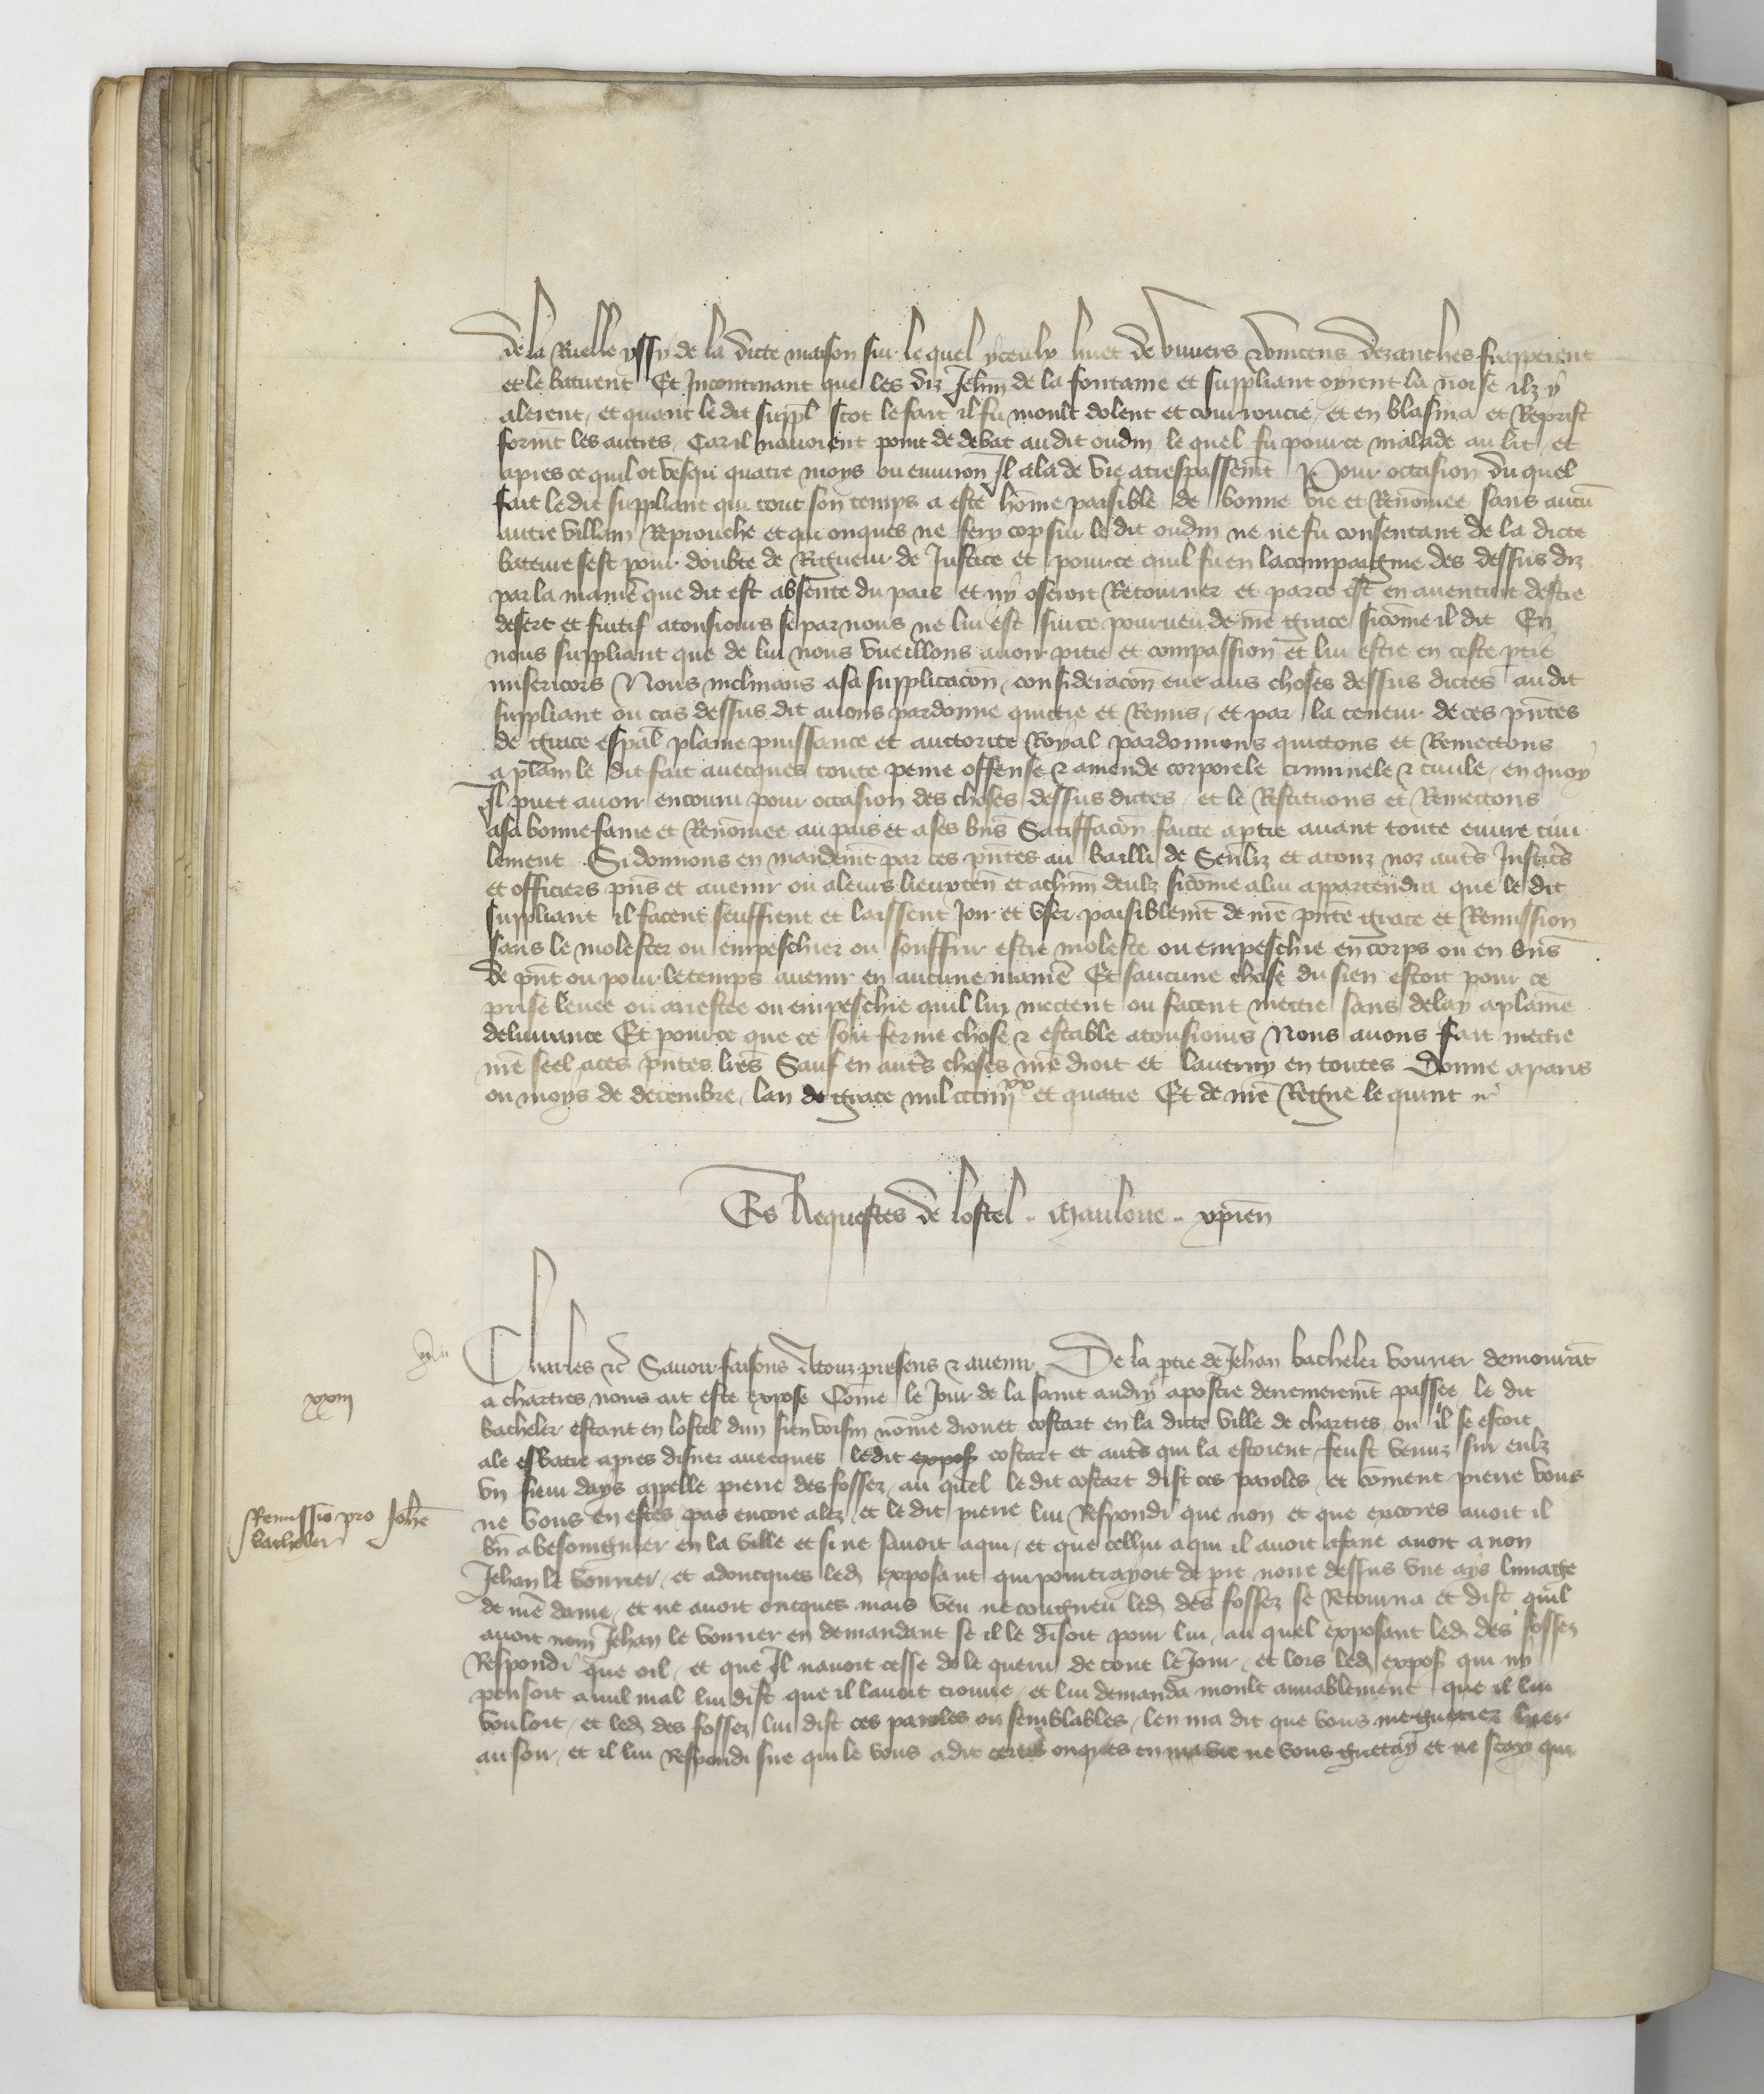 de la Ruelle yssy de la dicte maison sur lequel yceulx huet de viviers vincens dezanches frapperent
et le batirent Et Incontinant que les diz Jehan de la fontaine et suppliant oyrent la noise ilz y
alerent, et quant le dit suppl scot le fait il fu moult dolent et courroucie, et en blasma et Reprist
formt les autres, Car il navoient point de debat audit oudin, lequel fu pource malade au lit, et
apres ce quil ot vesqui quatre moys ou environ Il ala de vie a trespassemt Pour occasion du quel
fait le dit suppliant qui tout son temps a este hõme paisible de bonne vie et Renõmee sans aucũ
autre villain Reprouche et qui onques ne fery cop sur le dit oudin ne ne fu consentant de la dicte
bateure sest pour doubte de Rigueur de Justice et pource quil fu en la compaignie des dessus diz
par la maniẽ que dit est absente du pais et ny oseroit Retourner et par ce est en aventure destre
desert et fuitif a tousiours se par nous ne lui est sur ce pourveu de nrẽ grace sicõme il dit En
nous suppliant que de lui nous vueillons avoir pitie et compassion et lui estre en ceste ptie
misericors Nous inclinans a sa supplicacõn, consideracõn eue aus choses dessus dictes audit
suppliant ou cas dessus dit avons pardonne quictie et Remis, et par la teneur de ces pñtes
de grace espal plaine puissance et auctorite Royal pardonnons quictons et Remectons
a plain le dit fait avecques toute peine offense & amende corporele criminele & civile, en quoy
Il puet avoir encouru pour occasion des choses dessus dictes, et le Restituons et Remectons
a sa bonne fame et Renõmee au pais et a ses biẽs Satiffacõn faicte a ptie avant toute euvre civi
lement Si donnons en mandemt par ces pñtes au bailli de Senliz et a touz noz autẽs Justicẽs
et officiers pñs et avenir ou a leurs lieuxteñ et a chũn deulz sicõme a lui appartendra que le dit
suppliant il facent seuffrent et laissent Joir et user paisiblemt de nrẽ pñte grace et Remission
sans le molester ou empeschier ou souffrir estre moleste ou empeschie en corps ou en biẽs
de pñt ou pour le temps avenir en aucune maniẽ Et saucune chose du sien estoit pour ce
prise levee ou arrestee ou empeschie quil lui mectent ou facent mectre sans delay a plaine
delivrance Et pource que ce soit ferme chose & estable a tousiours Nous avons fait mectre
nrẽ seel a ces pñtes lrẽs Sauf en autẽs choses nrẽ droit et lautruy en toutes Donne a paris
ou moys de decembre, lan de grace mil ccc iiij xx et quatre Et de nrẽ Regne le quint
Es Requestes de lostel .. Mauloue .. xpien
Charles &c Savoir faisons A touz presens & avenir De la ptie de Jehan bacheler vourrer demourãt
a chartres nous ait este expose Cõme le Jour de la saint andry apostre derrenieremt passee, le dit
bacheler estant en lostel dun sien voisin nõme drouet costart en la dicte ville de chartres, ou il se estoit
ale esbatre apres disner avecques ledit expos costart et autẽs qui la estoient, feust venuz sur eulz
un sieur days appelle pierre des fossez, au quel le dit costart dist ces paroles, et cõment pierre vous
ne vous en estes pas encore alez, et le dit pierre lui Respondi que non et que encores avoit il
bñ a besoingnier en la ville et si ne savoit a qui, et que cellui a qui il avoit afaire avoit a non
Jehan le vourrer, et adoncques led exposant qui pourtrayoit de pie noire dessus une ays limage
de nrẽ dame, et ne avoit oncques mais veu ne congneu led des fossez se Retourna et dist quil
avoit nom Jehan le vourrer en demandant se il le disoit pour lui, au quel exposant led des fossez
Respondi que oil, et que Il navoit cesse de le querir de tout le Jour, et lors led expos qui ny
pensoit a nul mal lui dist que il lavoit trouve, et lui demanda moult amiablement que il lui
vouloit, et led des fossez lui dist ces paroles ou semblables, len ma dit que vous me guetiez hier
au soir, et il lui Respondi sire qui le vous a dit certes onques en ma vie ne vous guetay et ne scay qui
xxiij
Remissio pro Johẽ
bacheler